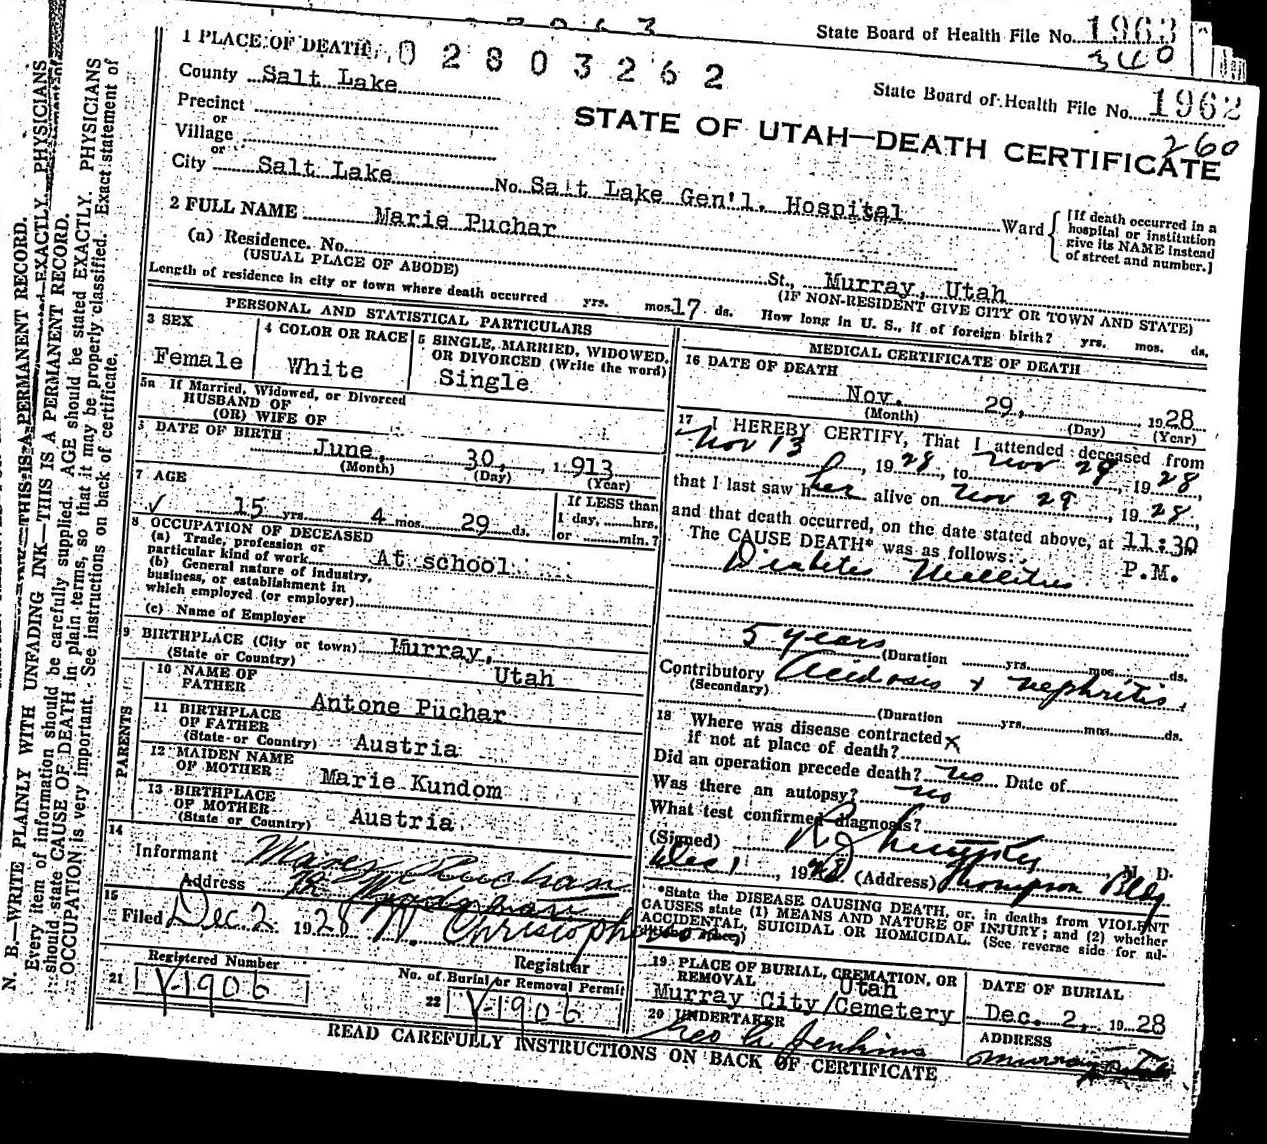 State Board of Health File No. 1963
340
1 PLACE OF DEATH 02803262
State Board of Health File No. 1962
260
County Salt Lake
STATE OF UTAH—DEATH CERTIFICATE
Precinct
or
Village
or
City Salt Lake No. Salt Lake Gen'l. Hospital Ward
[If death occurred in a
hospital or institution
give its NAME instead
of street and number.]
2 FULL NAME Marie Puchar
(a) Residence. No. St., Murray, Utah
(USUAL PLACE OF ABODE) (IF NON-RESIDENT GIVE CITY OR TOWN AND STATE)
Length of residence in city or town where death occurred yrs. mos. 17 ds. How long in U. S., if of foreign birth? yrs. mos. ds.
PERSONAL AND STATISTICAL PARTICULARS
3 SEX
Female
4 COLOR OR RACE
White
5 SINGLE, MARRIED, WIDOWED,
OR DIVORCED (Write the word)
Single
5a If Married, Widowed, or Divorced
HUSBAND OF
(OR) WIFE OF
DATE OF BIRTH
June, 30, 1913
(Month) (Day) (Year)
7 AGE
15 yrs. 4 mos. 29 ds.
If LESS than
1 day, hrs.
or min.?
8 OCCUPATION OF DECEASED
(a) Trade, profession or
particular kind of work At school
(b) General nature of industry,
business, or establishment in
which employed (or employer)
(c) Name of Employer
9 BIRTHPLACE (City or town) Murray,
(State or Country) Utah
PARENTS
10 NAME OF
FATHER Antone Puchar
11 BIRTHPLACE
OF FATHER
(State or Country) Austria
12 MAIDEN NAME
OF MOTHER Marie Kundom
13 BIRTHPLACE
OF MOTHER
(State or Country) Austria
14
Informant
Address
15
Filed Dec 2 1928
Registrar
Registered Number
21 Y-1906
No. of Burial or Removal Permit
22 Y-1906
MEDICAL CERTIFICATE OF DEATH
16 DATE OF DEATH
Nov. 29, 1928
(Month) (Day) (Year)
17 I HEREBY CERTIFY, That I attended deceased from
Nov 13, 1928, to Nov 29, 1928,
that I last saw her alive on Nov 29, 1928,
and that death occurred, on the date stated above, at 11:30
P.M.
The CAUSE DEATH* was as follows:
Diabetes Mellitus
5 years
(Duration yrs. mos. ds.
Contributory Acidosis + nephritis.
(Secondary)
(Duration yrs. mos. ds.
18 Where was disease contracted
if not at place of death? x
Did an operation precede death? no Date of
Was there an autopsy? no
What test confirmed diagnosis?
(Signed) M. D.
Dec 1, 1928 (Address) Thompson Bldg
*State the DISEASE CAUSING DEATH, or, in deaths from VIOLENT
CAUSES state (1) MEANS AND NATURE OF INJURY; and (2) whether
ACCIDENTAL, SUICIDAL OR HOMICIDAL. (See reverse side for ad-
19 PLACE OF BURIAL, CREMATION, OR
REMOVAL Utah
Murray City/Cemetery
DATE OF BURIAL
Dec. 2, 1928
20 UNDERTAKER
Geo A. Jenkins
ADDRESS
Murray Utah
READ CAREFULLY INSTRUCTIONS ON BACK OF CERTIFICATE
N. B.—WRITE PLAINLY WITH UNFADING INK—THIS IS A PERMANENT RECORD.
Every item of information should be carefully supplied. AGE should be stated EXACTLY. PHYSICIANS
should state CAUSE OF DEATH in plain terms, so that it may be properly classified. Exact statement of
OCCUPATION is very important. See instructions on back of certificate.